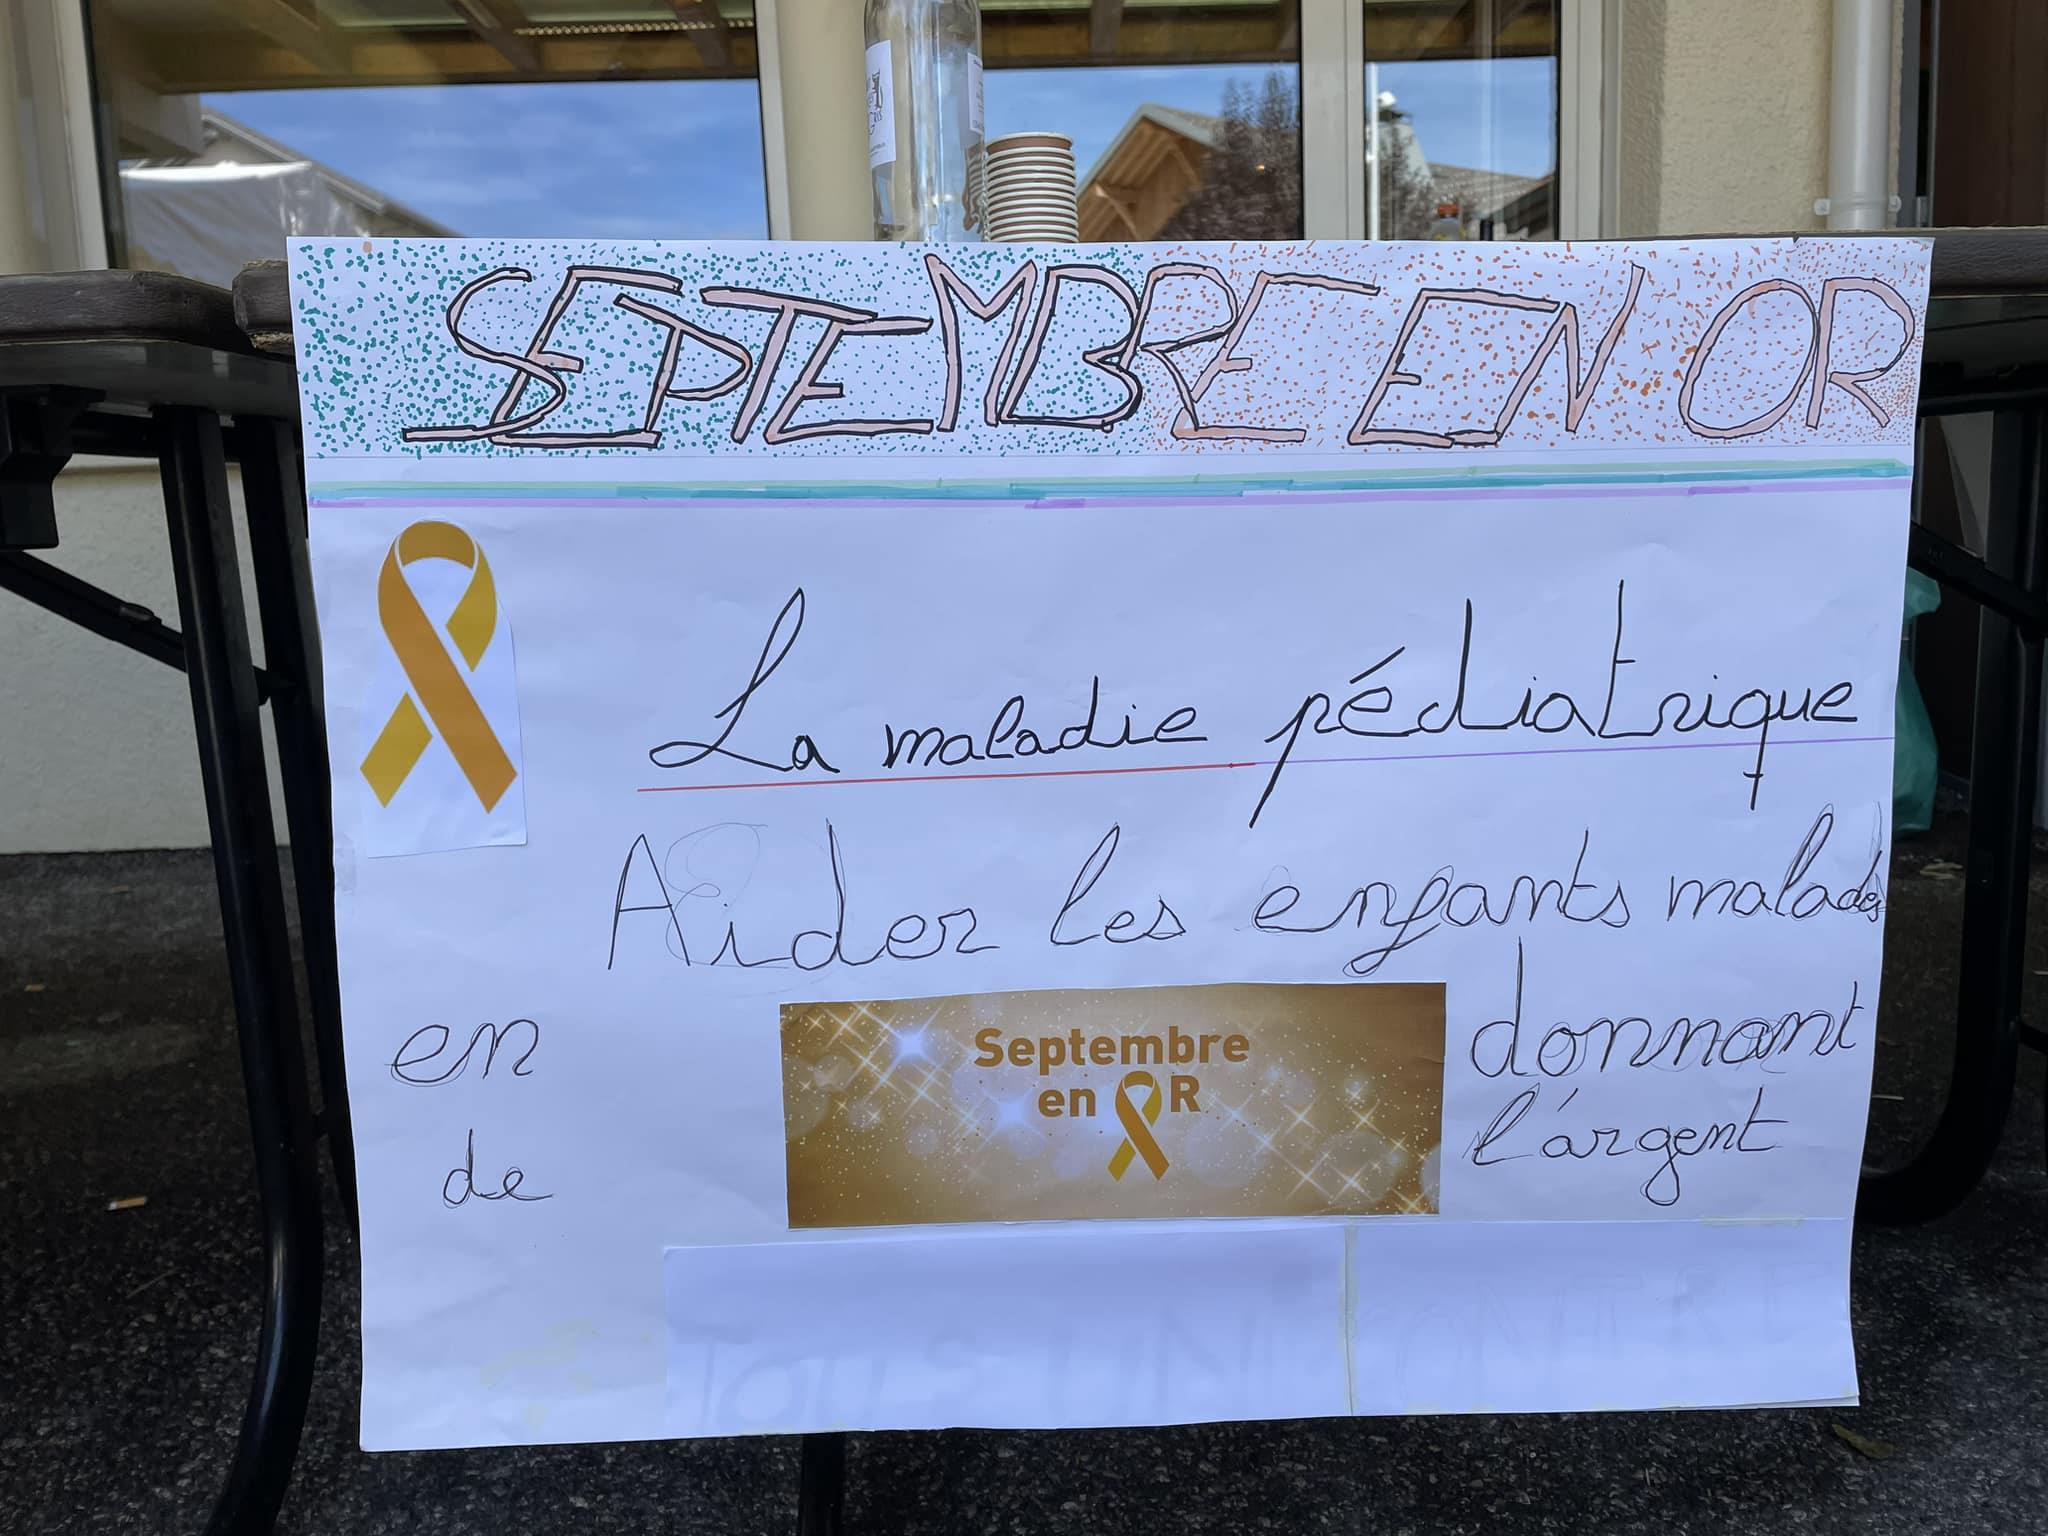 SEPTEMBRE EN OR
La maladie pédiatrique
Aider les enfants malades
en donnant
de l'argent
Septembre
en OR
TOUS UNI CONTRE